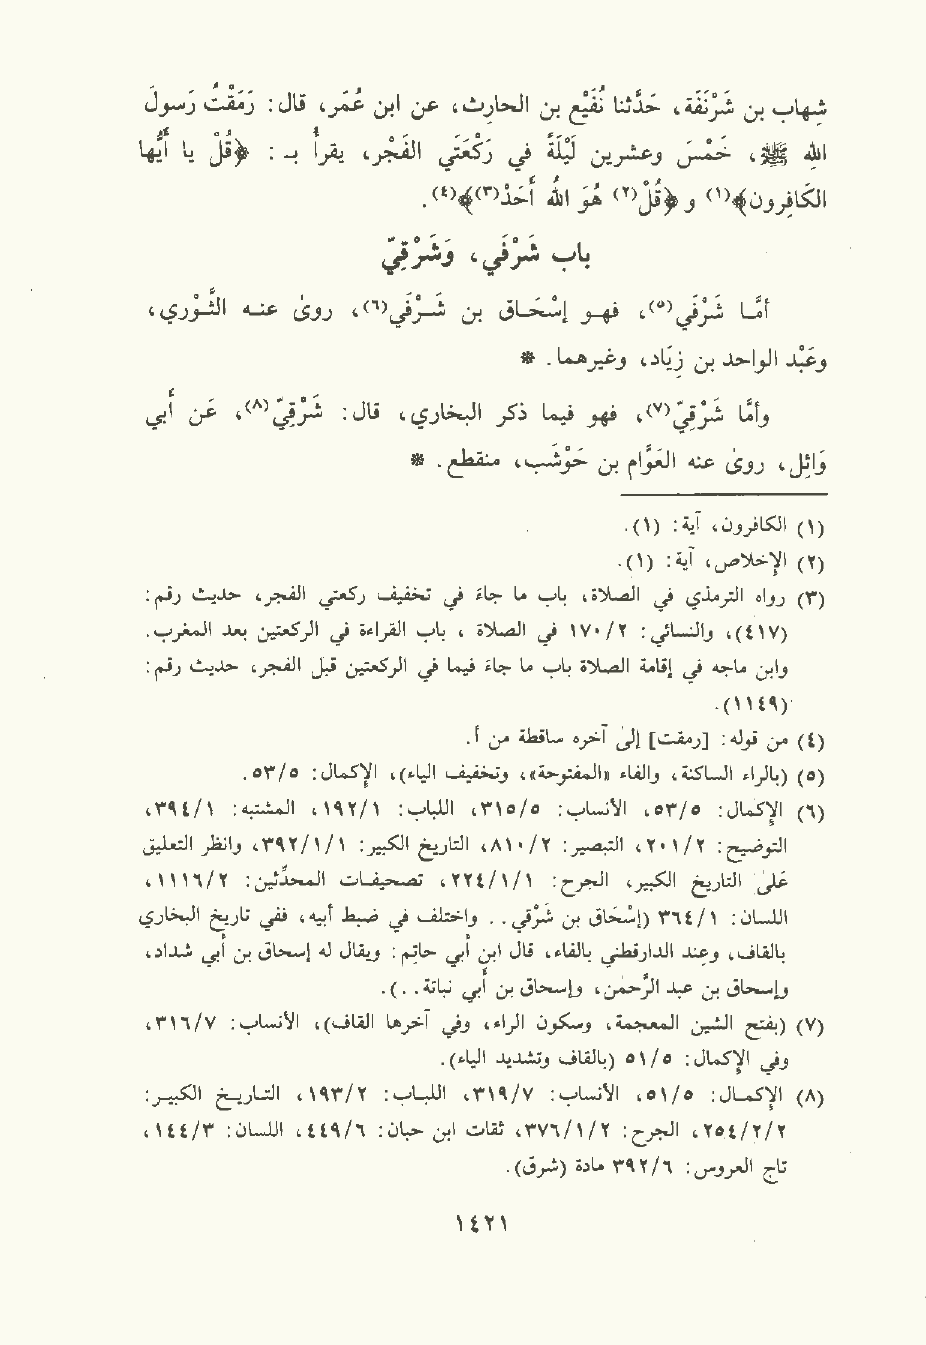 شِهاب بن شَرْنَفَة، حَدّثنا نُفَيْع بن الحارِث، عن ابن عُمَر، قال: رَمَقْتُ رَسولَ
اللهِ ﷺ، خَمْسَ وعشرين لَيْلَةً في رَكْعَتَي الفَجْر، يقرأ بـ: ﴿قُلْ يا أَيُّها
الكافِرون﴾(١) و﴿قُلْ(٢) هُوَ اللهُ أَحَدْ(٣)﴾(٤).
باب شَرْفي، وَشَرْقِيّ
أمَّا شَرْفي(٥)، فهو إسْحَاق بن شَرْفَي(٦)، روىٰ عنه الثَّوْري،
وعَبْد الواحد بن زِيَاد، وغيرهما. *
وأمَّا شَرْقِيّ(٧)، فهو فيما ذكر البخاري، قال: شَرْقِيّ(٨)، عَن أبي
وَائِل، روىٰ عنه العَوَّام بن حَوْشَب، منقطع. *
(١) الكافرون، آية: (١).
(٢) الإخلاص، آية: (١).
(٣) رواه الترمذي في الصلاة، باب ما جاء في تخفيف ركعتي الفجر، حديث رقم:
(٤١٧)، والنسائي: ١٧٠/٢ في الصلاة ، باب القراءة في الركعتين بعد المغرب.
وابن ماجه في إقامة الصلاة باب ما جاء فيما في الركعتين قبل الفجر، حديث رقم:
(١١٤٩).
(٤) من قوله: [رمقت] إلىٰ آخره ساقطة من أ.
(٥) (بالراء الساكنة، والفاء «المفتوحة»، وتخفيف الياء)، الإكمال: ٥٣/٥.
(٦) الإكمال: ٥٣/٥، الأنساب: ٣١٥/٥، اللباب: ١٩٢/١، المشتبه: ٣٩٤/١،
التوضيح: ٢٠١/٢، التبصير: ٨١٠/٢، التاريخ الكبير: ٣٩٢/١/١، وانظر التعليق
عَلىٰ التاريخ الكبير، الجرح: ٢٢٤/١/١، تصحيفات المحدّثين: ١١١٦/٢،
اللسان: ٣٦٤/١ (إسْحَاق بن شَرْقي.. واختلف في ضبط أبيه، ففي تاريخ البخاري
بالقاف، وعند الدارقطني بالفاء، قال ابن أبي حاتِم: ويقال له إسحاق بن أبي شداد،
وإسحاق بن عبد الرَّحمٰن، وإسحاق بن أبي نباتة..).
(٧) (بفتح الشين المعجمة، وسكون الراء، وفي آخرها القاف)، الأنساب: ٣١٦/٧،
وفي الإكمال: ٥١/٥ (بالقاف وتشديد الياء).
(٨) الإكمال: ٥١/٥، الأنساب: ٣١٩/٧، اللباب: ١٩٣/٢، التاريخ الكبير:
٢٥٤/٢/٢، الجرح: ٣٧٦/١/٢، ثقات ابن حبان: ٤٤٩/٦، اللسان: ١٤٤/٣،
تاج العروس: ٣٩٢/٦ مادة (شرق).
١٤٢١